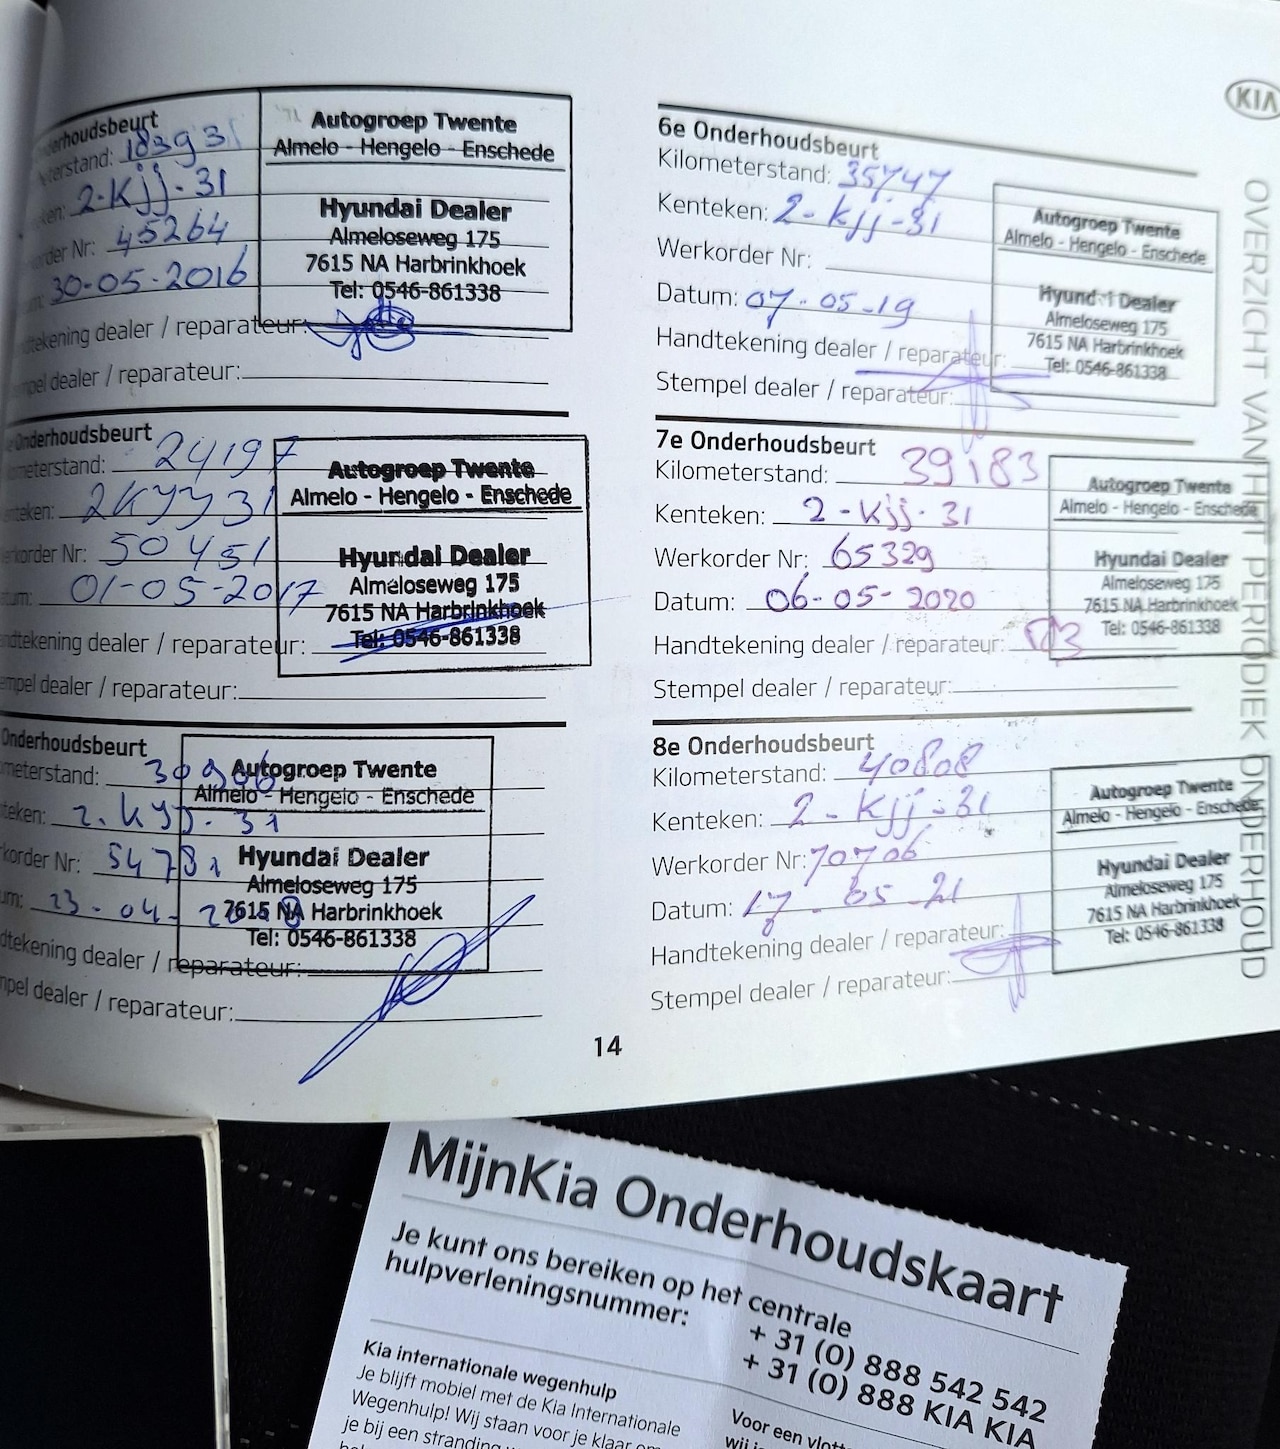 nderhoudsbeurt
terstand: 183931
ken: 2-Kjj-31
order Nr: 45264
um: 30-05-2016
dtekening dealer / reparateur:
pel dealer / reparateur:
Autogroep Twente
Almelo - Hengelo - Enschede
Hyundai Dealer
Almeloseweg 175
7615 NA Harbrinkhoek
Tel: 0546-861338
Onderhoudsbeurt
meterstand: 24197
nteken: 2Kyy31
erkorder Nr: 50451
tum: 01-05-2017
andtekening dealer / reparateur:
empel dealer / reparateur:
Autogroep Twente
Almelo - Hengelo - Enschede
Hyundai Dealer
Almeloseweg 175
7615 NA Harbrinkhoek
Tel: 0546-861338
Onderhoudsbeurt
meterstand: 30906
nteken: 2.Kjj-31
korder Nr: 54781
um: 23-04-2018
dtekening dealer / reparateur:
mpel dealer / reparateur:
Autogroep Twente
Almelo - Hengelo - Enschede
Hyundai Dealer
Almeloseweg 175
7615 NA Harbrinkhoek
Tel: 0546-861338
6e Onderhoudsbeurt
Kilometerstand: 35747
Kenteken: 2-Kjj-31
Werkorder Nr:
Datum: 07-05-19
Handtekening dealer / reparateur:
Stempel dealer / reparateur:
Autogroep Twente
Almelo - Hengelo - Enschede
Hyundai Dealer
Almeloseweg 175
7615 NA Harbrinkhoek
Tel: 0546-861338
7e Onderhoudsbeurt
Kilometerstand: 39183
Kenteken: 2-Kjj-31
Werkorder Nr: 65329
Datum: 06-05-2020
Handtekening dealer / reparateur:
Stempel dealer / reparateur:
Autogroep Twente
Almelo - Hengelo - Enschede
Hyundai Dealer
Almeloseweg 175
7615 NA Harbrinkhoek
Tel: 0546-861338
8e Onderhoudsbeurt
Kilometerstand: 40808
Kenteken: 2-Kjj-31
Werkorder Nr: 70706
Datum: 17-05-21
Handtekening dealer / reparateur:
Stempel dealer / reparateur:
Autogroep Twente
Almelo - Hengelo - Enschede
Hyundai Dealer
Almeloseweg 175
7615 NA Harbrinkhoek
Tel: 0546-861338
KIA
OVERZICHT VAN HET PERIODIEK ONDERHOUD
14
MijnKia Onderhoudskaart
Je kunt ons bereiken op het centrale
hulpverleningsnummer:
+ 31 (0) 888 542 542
+ 31 (0) 888 KIA KIA
Kia internationale wegenhulp
Je blijft mobiel met de Kia Internationale
Wegenhulp! Wij staan voor je klaar om
je bij een stranding
Voor een vlott
wij